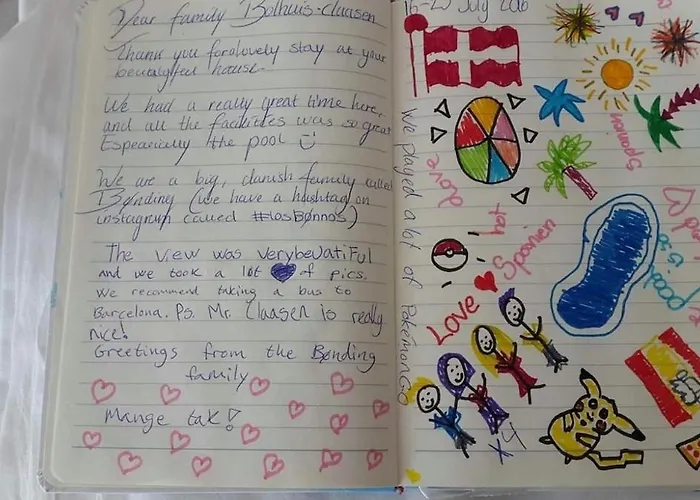 Dear family Bolhuis-Claasen
Thank you for a lovely stay at your
beutalyfed house.
We had a really great time here,
and all the facileties was so great
Espearially the pool
We are a big, danish family called
Bønding (we have a hashtag on
instagram called #losBønnos)
The view was verybeuatiFul
and we took a lot of pics.
We recommend taking a bus to
Barcelona. Ps. Mr. Claasen is really
nice!
Greetings from the Bønding
family
Mange tak!
16-23 July 2016
We played a lot of Pokémon GO
love
Spanien
hot
Love Spanien
pool
x4